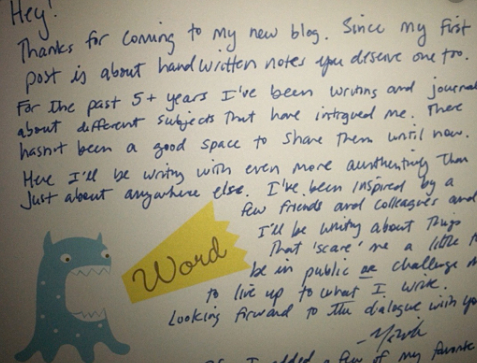 Hey!
Thanks for coming to my new blog. Since my first
post is about handwritten notes you deserve one too.
For the past 5+ years I've been writing and journal
about different subjects that have intrigued me. There
hasn't been a good space to share them until now.
Here I'll be writing with even more authenticity than
just about anywhere else. I've been inspired by a
few friends and colleagues and
I'll be writing about things
that 'scare' me a little to
be in public or challenge m
to live up to what I write.
Looking forward to the dialogue with yo
Word
I added a few of my favorite